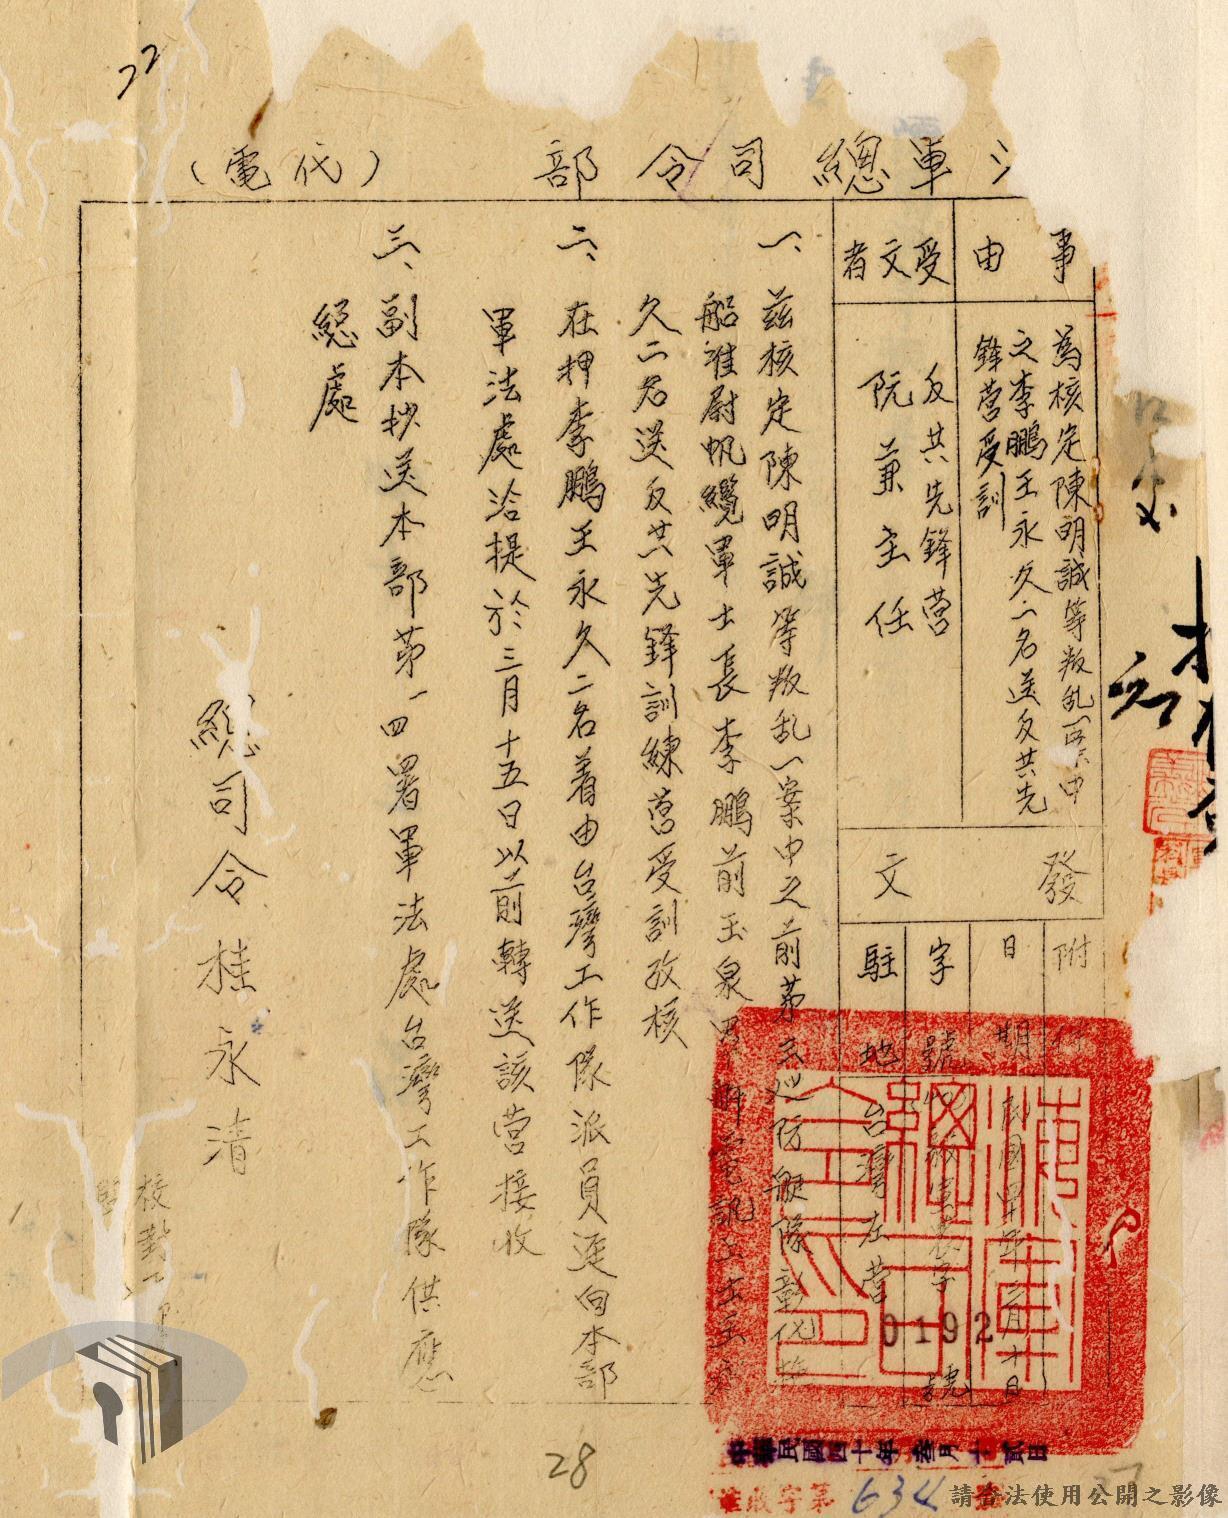 22
軍總司令部（代電）
事由
為核定陳明誠等叛乱一案中
之李鵬王永久二名送反共先
鋒營受訓
受文者
反共先鋒營
阮兼主任
發文
附件
日期
民國四十年三月十日
字號
0192
號
駐地
台灣左營
一、茲核定陳明誠等叛乱一案中之前第三巡防艇隊彰化拖
船准尉帆纜軍士長李鵬前玉泉軍
久二名送反共先鋒訓練營受訓攷核
二、在押李鵬王永久二名着由台灣工作隊派員逕向本部
軍法處洽提於三月十五日以前轉送該營接收
三、副本抄送本部第一四署軍法處台灣工作隊供應
總處
總司令桂永清
校對
監
海軍總司令印
中華民國四十年叁月十貳日
收字第634號
28
27
請合法使用公開之影像